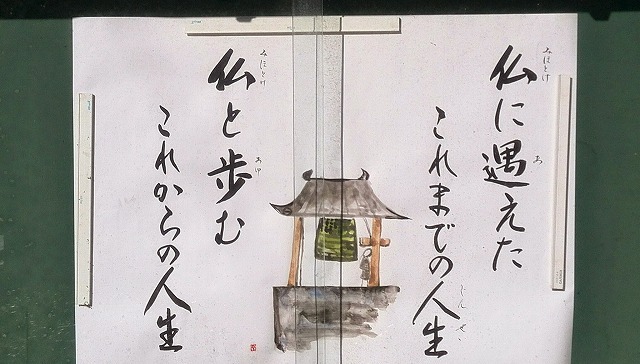 仏に遇えた
これまでの人生
仏と歩む
これからの人生
みほとけ
あ
じんせい
みほとけ
あゆ